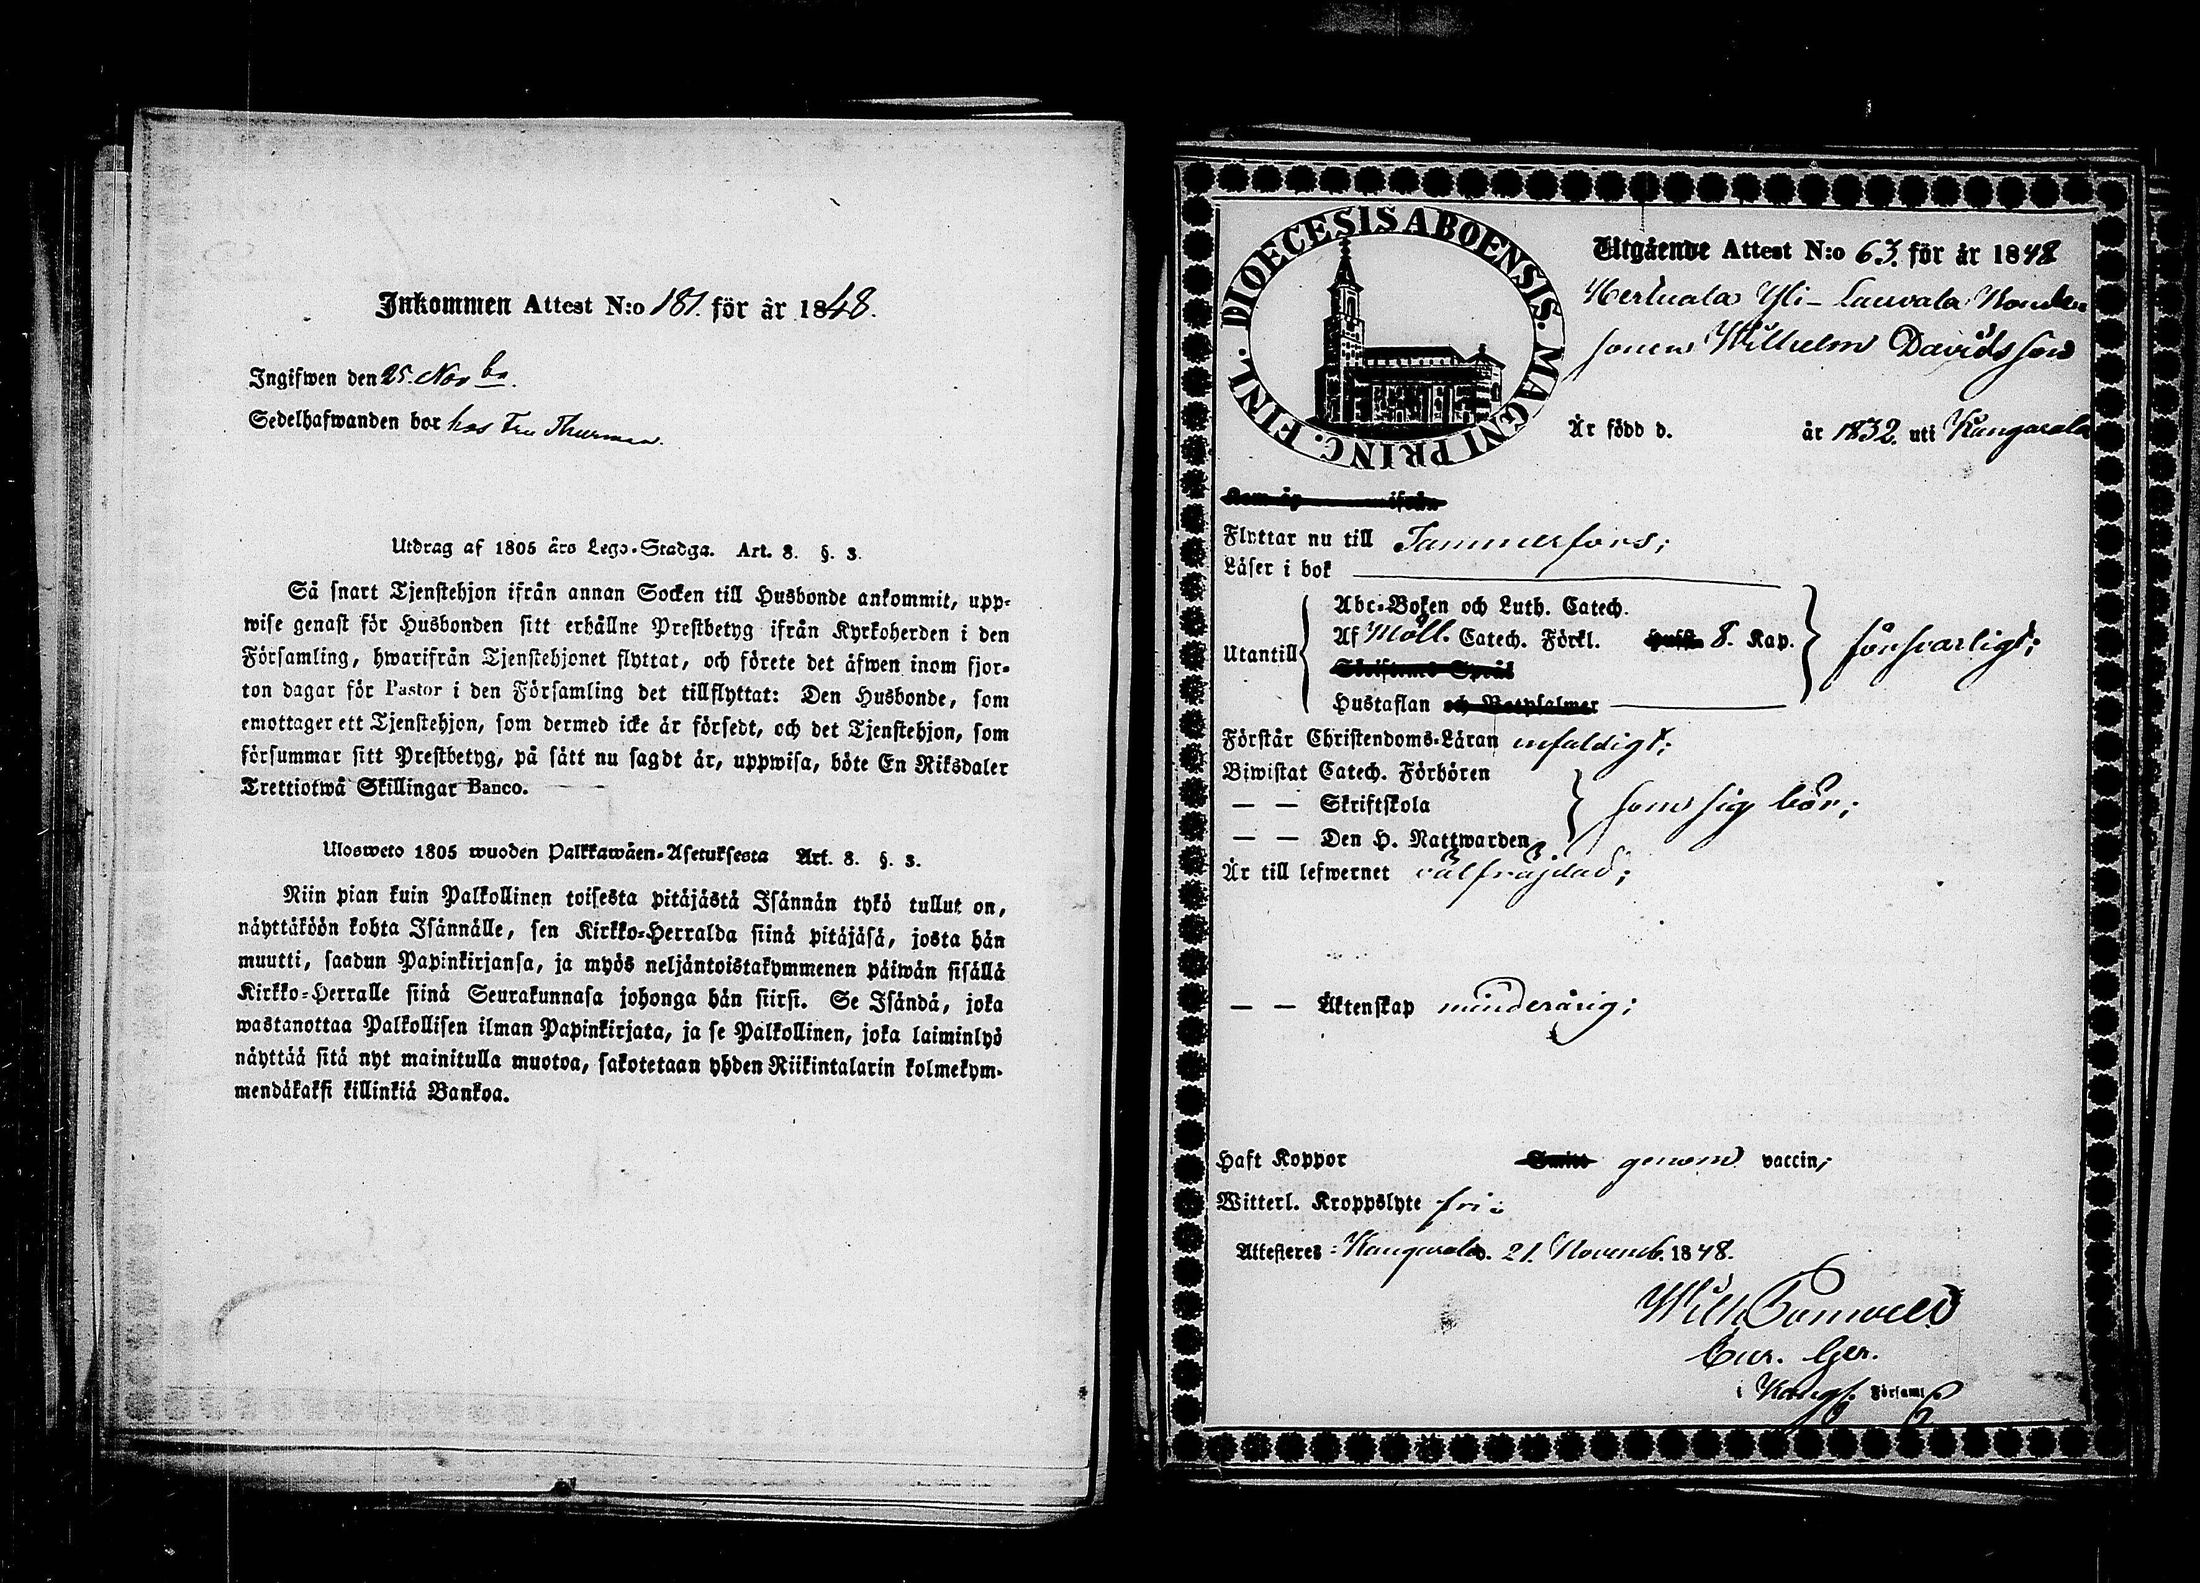 Inkommen Attest N:o 181. för år 1848.
Ingifwen den 25. Nov br.
Sedelhafwanden bor hos Fru Thurman.
Utdrag af 1805 års Lego-Stadga. Art. 8. §. 3.
Så snart Tjenstehjon ifrån annan Socken till Husbonde ankommit, upp-
wise genast för Husbonden sitt erhållne Prestbetyg ifrån Kyrkoherden i den
Församling, hwarifrån Tjenstehjonet flyttat, och förete det äfwen inom fjor-
ton dagar för Pastor i den Församling det tillflyttat: Den Husbonde, som
emottager ett Tjenstehjon, som dermed icke är försedt, och det Tjenstehjon, som
försummar sitt Prestbetyg, på sätt nu sagdt är, uppwisa, böte En Riksdaler
Trettiotwå Skillingar Banco.
Ulosweto 1805 wuoden Palkkawäen-Asetuksesta Art. 8. §. 3.
Niin pian kuin Palkollinen toisesta pitäjästä Isännän tykö tullut on,
näyttäköön kohta Isännälle, sen Kirkko-Herralda siinä pitäjäsä, josta hän
muutti, saadun Papinkirjansa, ja myös neljäntoistakymmenen päiwän sisällä
Kirkko-Herralle siinä Seurakunnasa johonga hän siirsi. Se Isändä, joka
wastanottaa Palkollisen ilman Papinkirjata, ja se Palkollinen, joka laiminlyö
näyttää sitä nyt mainitulla muotoa, sakotetaan yhden Riikintalarin kolmekym-
mendäkaksi killinkiä Bankoa.
DIOECESIS ABOENSIS. MAGNI PRINC. FINL.
Utgående Attest N:o 63. för år 1848
Yli-
sonen Wilhelm Davidsson
Är född d. år 1832. uti Kangasala
Kom år ifrån
Flyttar nu till Tammerfors;
Läser i bok
Utantill
Abc-Boken och Luth. Catech.
Af Möll. Catech. Förkl. 8. Kap.
försvarligt;
Skriftens Språk
Hustaflan och Botpsalmer
Förstår Christendoms-Läran enfaldigt;
Biwistat Catech. Förhören
— — Skriftskola
som sig bör;
— — Den H. Nattwarden
Är till lefwernet välfräjdad;
— — Äktenskap minderårig;
Haft Koppor Smitt genom vaccin;
Witterl. Kroppslyte fri;
Attesteres: Kangasala d. 21. Novemb. 1848.
Wilh
Cur. Ger.
i Kangs. Församl